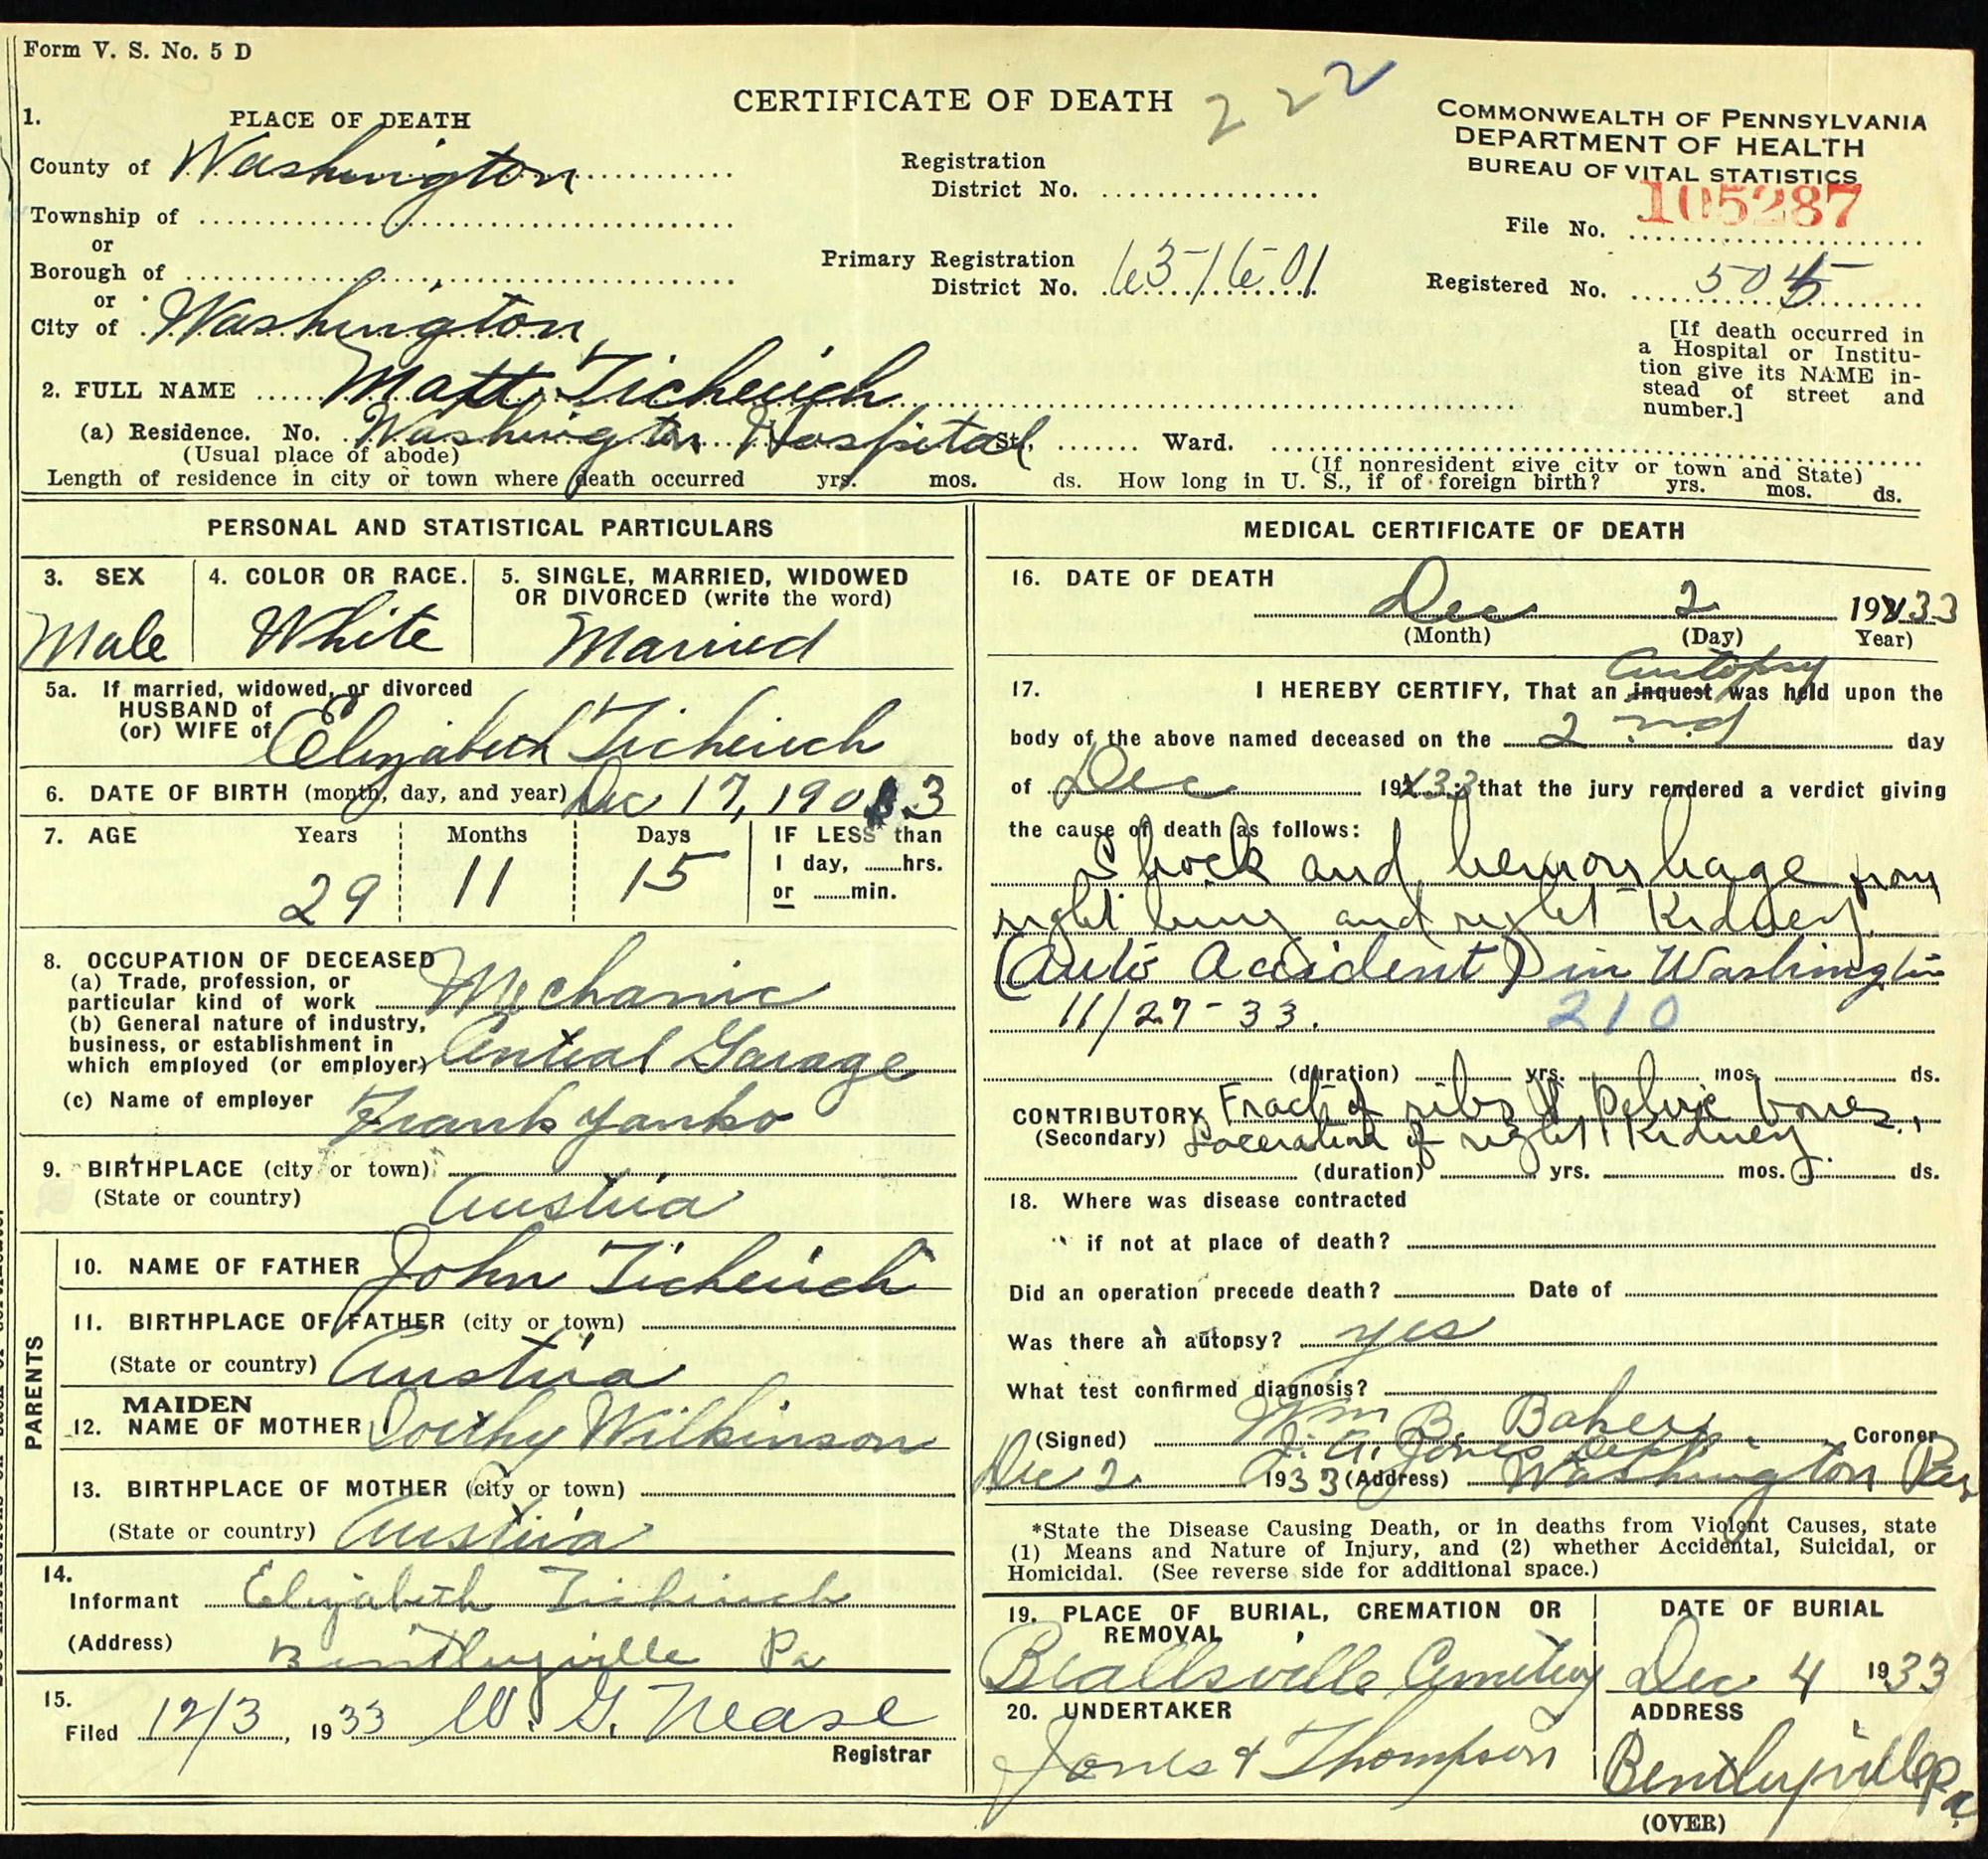 Form V. S. No. 5 D
222
CERTIFICATE OF DEATH
COMMONWEALTH OF PENNSYLVANIA
DEPARTMENT OF HEALTH
BUREAU OF VITAL STATISTICS
1. PLACE OF DEATH
County of Washington
Township of
or
Borough of
or
City of Washington
Registration
District No.
Primary Registration
District No. 63-16-01
File No. 105287
Registered No. 505
[If death occurred in
a Hospital or Institu-
tion give its NAME in-
stead of street and
number.]
2. FULL NAME Matt Ticherich
(a) Residence. No. Washington Hospital St. Ward.
(Usual place of abode)
(If nonresident give city or town and State)
Length of residence in city or town where death occurred yrs. mos. ds. How long in U. S., if of foreign birth? yrs. mos. ds.
PERSONAL AND STATISTICAL PARTICULARS
3. SEX
Male
4. COLOR OR RACE.
White
5. SINGLE, MARRIED, WIDOWED
OR DIVORCED (write the word)
Married
5a. If married, widowed, or divorced
HUSBAND of
(or) WIFE of Elizabeth Ticherich
6. DATE OF BIRTH (month, day, and year) Dec 17, 1903
7. AGE Years Months Days IF LESS than
1 day, hrs.
29 11 15
or min.
8. OCCUPATION OF DECEASED
(a) Trade, profession, or
particular kind of work Mechanic
(b) General nature of industry,
business, or establishment in
which employed (or employer) Central Garage
(c) Name of employer Frank Yanko
9. BIRTHPLACE (city or town)
(State or country) Austria
PARENTS
10. NAME OF FATHER John Ticherich
11. BIRTHPLACE OF FATHER (city or town)
(State or country) Austria
12. MAIDEN
NAME OF MOTHER Wilkinson
13. BIRTHPLACE OF MOTHER (city or town)
(State or country) Austria
14.
Informant Elizabeth Ticherich
(Address) Bentleyville Pa
15.
Filed 12/3, 1933 W. G. Nease
Registrar
MEDICAL CERTIFICATE OF DEATH
16. DATE OF DEATH
Dec 2 1933
(Month) (Day) Year)
Autopsy
17. I HEREBY CERTIFY, That an inquest was held upon the
body of the above named deceased on the 2nd day
of Dec 1933; that the jury rendered a verdict giving
the cause of death as follows:
Shock and hemorrhage from
right lung and right Kidney.
(Auto Accident) in Washington
11/27-33. 210
(duration) yrs. mos. ds.
CONTRIBUTORY Fract of ribs & Pelvic bones,
(Secondary) Laceration of right Kidney.
(duration) yrs. mos. ds.
18. Where was disease contracted
if not at place of death?
Did an operation precede death? Date of
Was there an autopsy? yes
What test confirmed diagnosis?
(Signed) Wm B. Baker Coroner
J. A. Jones Dep.
Dec 2 1933 (Address) Washington Pa
*State the Disease Causing Death, or in deaths from Violent Causes, state
(1) Means and Nature of Injury, and (2) whether Accidental, Suicidal, or
Homicidal. (See reverse side for additional space.)
19. PLACE OF BURIAL, CREMATION OR
REMOVAL
Beallsville Cemetery
DATE OF BURIAL
Dec 4 1933
20. UNDERTAKER
Jones & Thompson
ADDRESS
Bentleyville Pa
(OVER)